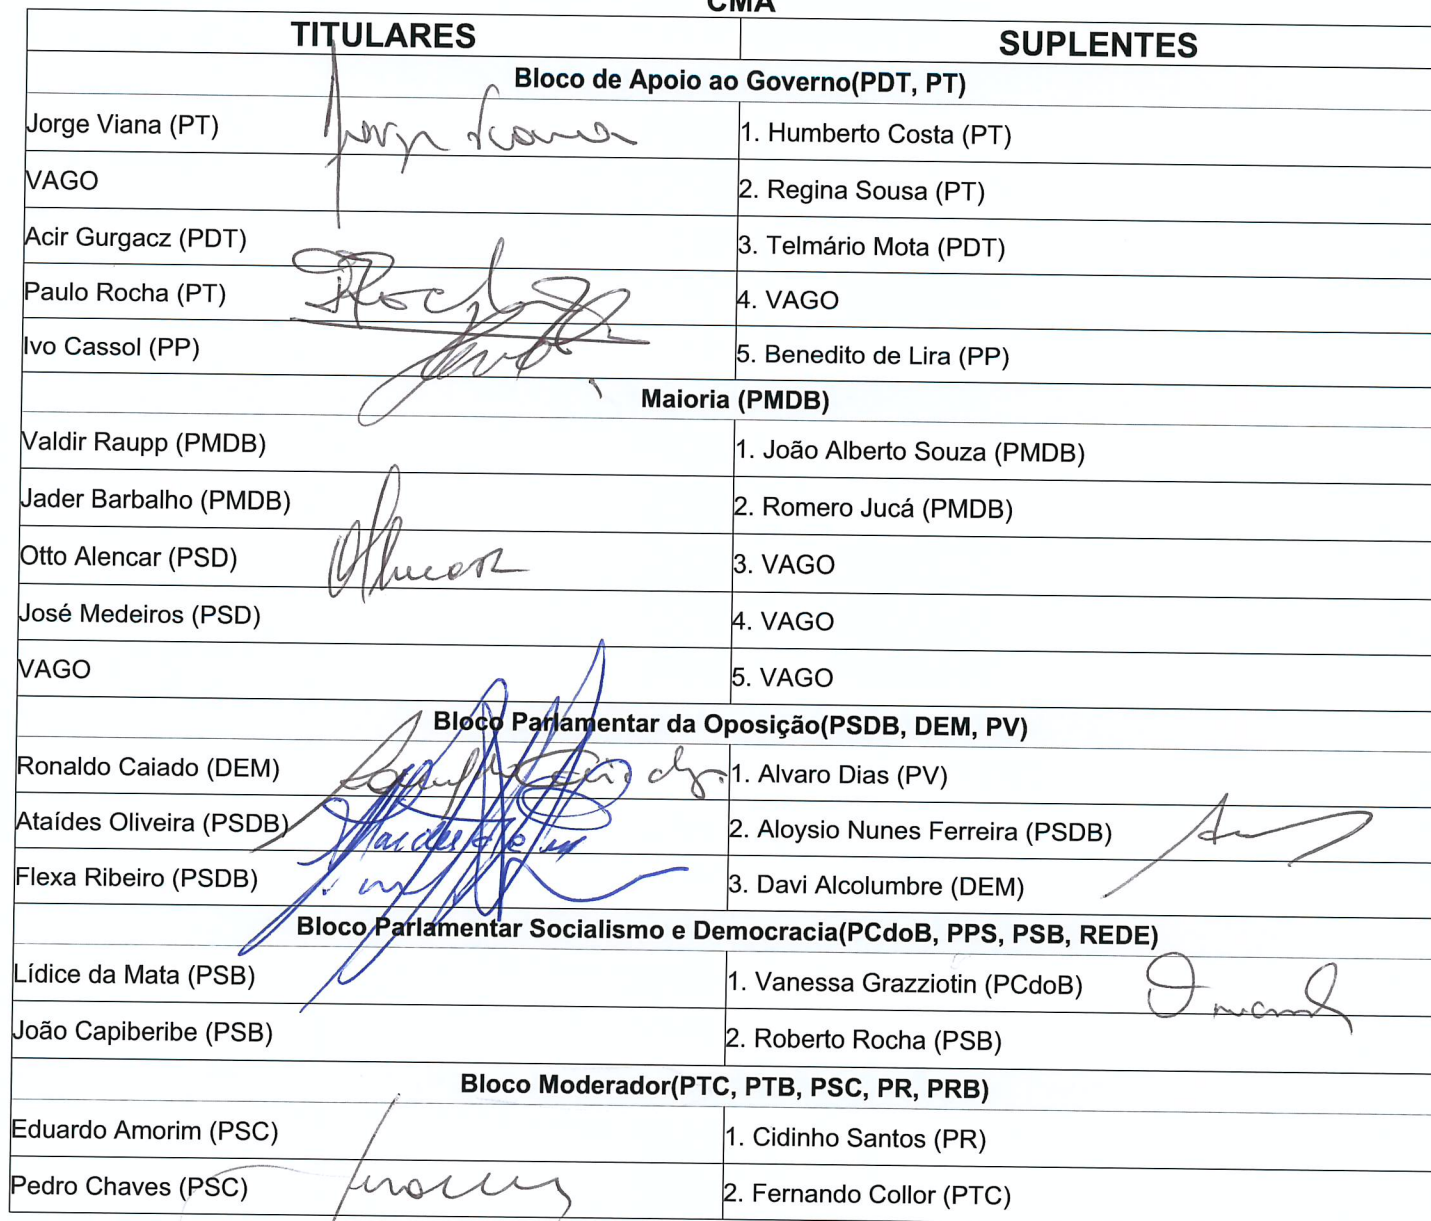 CMA
TITULARES SUPLENTES
Bloco de Apoio ao Governo(PDT, PT)
Jorge Viana (PT) Jorge Viana 1. Humberto Costa (PT)
VAGO 2. Regina Sousa (PT)
Acir Gurgacz (PDT) 3. Telmário Mota (PDT)
Paulo Rocha (PT) 4. VAGO
Ivo Cassol (PP) 5. Benedito de Lira (PP)
Maioria (PMDB)
Valdir Raupp (PMDB) 1. João Alberto Souza (PMDB)
Jader Barbalho (PMDB) 2. Romero Jucá (PMDB)
Otto Alencar (PSD) 3. VAGO
José Medeiros (PSD) 4. VAGO
VAGO 5. VAGO
Bloco Parlamentar da Oposição(PSDB, DEM, PV)
Ronaldo Caiado (DEM) 1. Alvaro Dias (PV)
Ataídes Oliveira (PSDB) 2. Aloysio Nunes Ferreira (PSDB)
Flexa Ribeiro (PSDB) 3. Davi Alcolumbre (DEM)
Bloco Parlamentar Socialismo e Democracia(PCdoB, PPS, PSB, REDE)
Lídice da Mata (PSB) 1. Vanessa Grazziotin (PCdoB)
João Capiberibe (PSB) 2. Roberto Rocha (PSB)
Bloco Moderador(PTC, PTB, PSC, PR, PRB)
Eduardo Amorim (PSC) 1. Cidinho Santos (PR)
Pedro Chaves (PSC) 2. Fernando Collor (PTC)